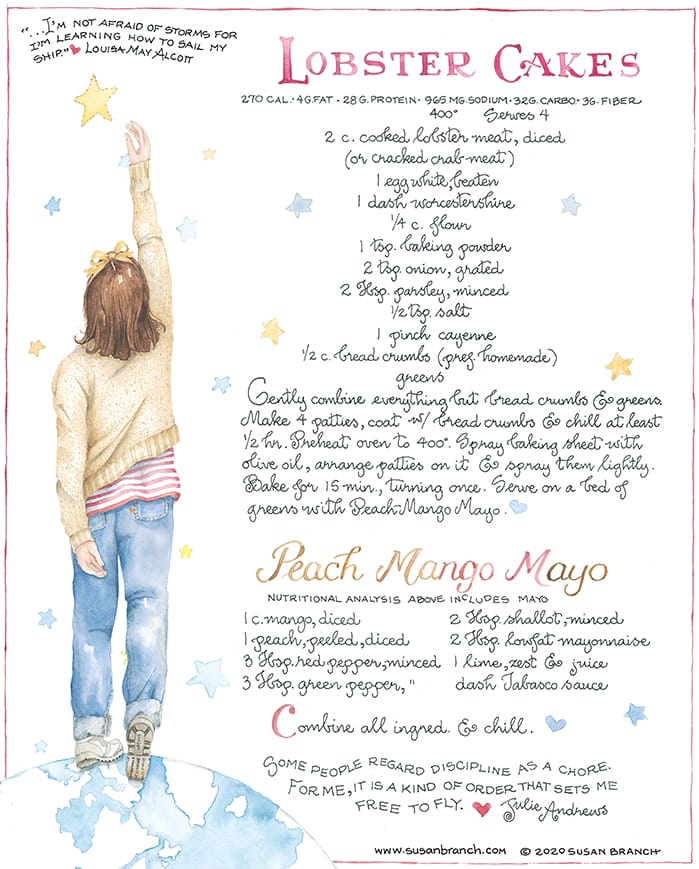 "...I'M NOT AFRAID OF STORMS FOR
I'M LEARNING HOW TO SAIL MY
SHIP." LOUISA MAY ALCOTT
LOBSTER CAKES
270 CAL. · 4G. FAT · 28 G. PROTEIN · 965 MG. SODIUM · 32G. CARBO · 3G. FIBER
400° Serves 4
2 c. cooked lobster meat, diced
(or cracked crab meat)
1 egg white, beaten
1 dash worcestershire
1/4 c. flour
1 tsp. baking powder
2 tsp. onion, grated
2 Tbsp. parsley, minced
1/2 tsp. salt
1 pinch cayenne
1/2 c. bread crumbs (pref. homemade)
greens
Gently combine everything but bread crumbs & greens.
Make 4 patties, coat w/ bread crumbs & chill at least
1/2 hr. Preheat oven to 400°. Spray baking sheet with
olive oil, arrange patties on it & spray them lightly.
Bake for 15 min., turning once. Serve on a bed of
greens with Peach-Mango Mayo.
Peach Mango Mayo
NUTRITIONAL ANALYSIS ABOVE INCLUDES MAYO
1 c. mango, diced
1 peach, peeled, diced
3 Tbsp. red pepper, minced
3 Tbsp. green pepper, "
2 Tbsp. shallot, minced
2 Tbsp. lowfat mayonnaise
1 lime, zest & juice
dash Tabasco sauce
Combine all ingred. & chill.
SOME PEOPLE REGARD DISCIPLINE AS A CHORE.
FOR ME, IT IS A KIND OF ORDER THAT SETS ME
FREE TO FLY. Julie Andrews
www.susanbranch.com © 2020 SUSAN BRANCH